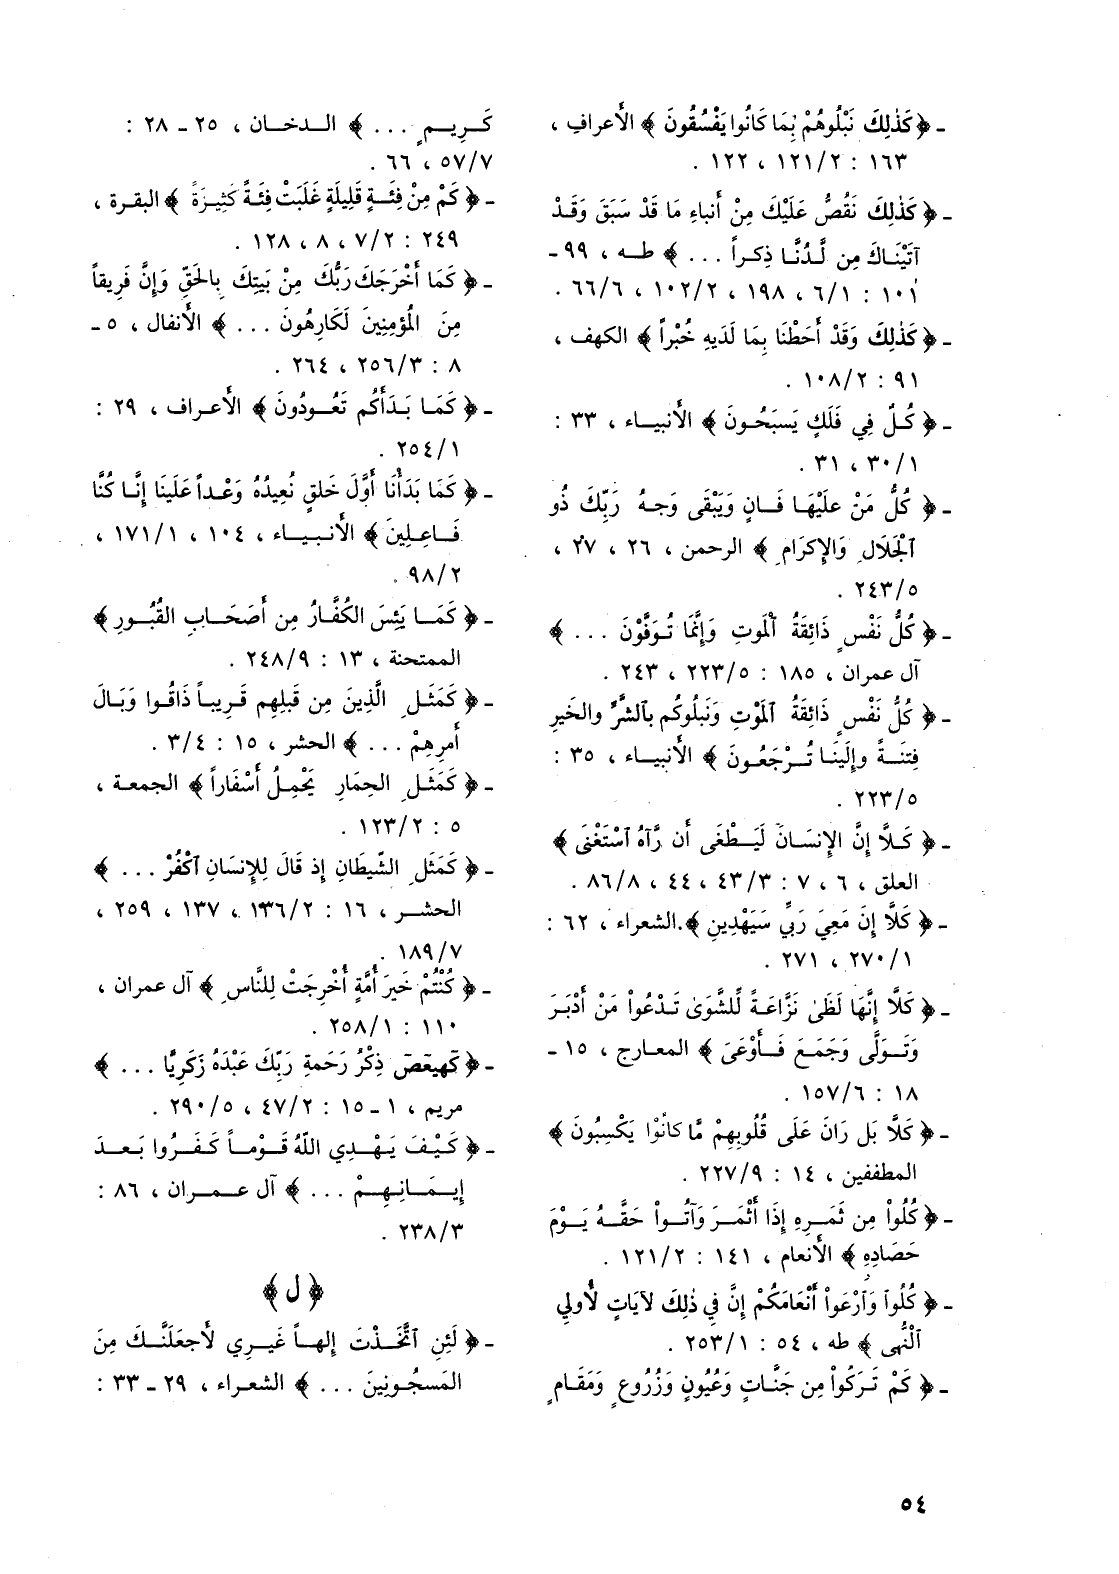 - ﴿ كَذٰلِكَ نَبْلُوهُمْ بِمَا كَانُوا يَفْسُقُونَ ﴾ الأعراف ،
١٦٣ : ١٢١/٢ ، ١٢٢ .
- ﴿ كَذٰلِكَ نَقُصُّ عَلَيْكَ مِنْ أَنباءِ مَا قَدْ سَبَقَ وَقَدْ
آتَيْنَاكَ مِن لَّدُنَّا ذِكراً ... ﴾ طه ، ٩٩ -
١٠١ : ٦/١ ، ١٩٨ ، ١٠٢/٢ ، ٦٦/٦ .
- ﴿ كَذٰلِكَ وَقَدْ أَحَطْنَا بِمَا لَدَيهِ خُبْراً ﴾ الكهف ،
٩١ : ١٠٨/٢ .
- ﴿ كُلّ فِي فَلَكٍ يَسبَحُونَ ﴾ الأنبياء ، ٣٣ :
٣٠/١ ، ٣١ .
- ﴿ كُلُّ مَنْ عليْهَا فَانٍ وَيَبْقَى وَجهُ رَبِّكَ ذُو
ٱلْجَلَالِ وَالإكرَامِ ﴾ الرحمن ، ٢٦ ، ٢٧ ،
٢٤٣/٥ .
- ﴿ كُلُّ نَفْسٍ ذَائِقَةُ ٱلْمَوتِ وَإِنَّمَا تُوَفَّوْنَ ... ﴾
آل عمران ، ١٨٥ : ٢٢٣/٥ ، ٢٤٣ .
- ﴿ كُلُّ نَفْسٍ ذَائِقَةُ ٱلْمَوْتِ وَنَبلُوكُم بٱلشرِّ والخَيرِ
فِتنَةً وإِلَينَا تُرْجَعُونَ ﴾ الأنبياء ، ٣٥ :
٢٢٣/٥ .
- ﴿ كَلاَّ إِنَّ الإنسَانَ لَيَطْغَى أَن رَّآهُ ٱسْتَغْنَى ﴾
العلق ، ٦ ، ٧ : ٤٣/٣ ، ٤٤ ، ٨٦/٨ .
- ﴿ كَلَّا إِنَ مَعِيَ رَبِّي سَيَهْدِينِ ﴾ الشعراء ، ٦٢ :
٢٧٠/١ ، ٢٧١ .
- ﴿ كَلَّا إِنَّهَا لَظَىٰ نَزَّاعَةً لِّلشَّوَىٰ تَدْعُواْ مَنْ أَدْبَرَ
وَتَوَلَّى وَجَمَعَ فَأَوْعَىَ ﴾ المعارج ، ١٥ -
١٨ : ١٥٧/٦ .
- ﴿ كَلاَّ بَل رَانَ عَلَى قُلُوبِهِمْ مَّا كَانُوْا يَكْسِبُونَ ﴾
المطففين ، ١٤ : ٢٢٧/٩ .
- ﴿ كُلُواْ مِن ثَمَرِهِ إِذَا أَثْمَرَ وَآتُواْ حَقَّهُ يَوْمَ
حَصَادِهِ ﴾ الأنعام ، ١٤١ : ١٢١/٢ .
- ﴿ كُلُواْ وَٱرْعَواْ أَنْعَامَكُمْ إِنَّ فِي ذٰلِكَ لآيَاتٍ لأُولِي
ٱلْنُّهى ﴾ طه ، ٥٤ : ٢٥٣/١ .
- ﴿ كَمْ تَرَكُواْ مِن جَنَّاتٍ وَعُيُونٍ وَزُرُوعٍ وَمَقَامٍ
كَرِيمٍ ... ﴾ الدخان ، ٢٥ - ٢٨ :
٥٧/٧ ، ٦٦ .
- ﴿ كَمْ مِنْ فِئَةٍ قَلِيلَةٍ غَلَبَتْ فِئَةً كَثِيرَةً ﴾ البقرة ،
٢٤٩ : ٧/٢ ، ٨ ، ١٢٨ .
- ﴿ كَمَا أَخْرَجَكَ رَبُّكَ مِنْ بَيتِكَ بِالحَقِّ وَإِنَّ فَرِيقاً
مِنَ المُؤمِنِينَ لَكَارِهُونَ ... ﴾ الأنفال ، ٥ -
٨ : ٢٥٦/٣ ، ٢٦٤ .
- ﴿ كَمَا بَدَأَكُم تَعُودُونَ ﴾ الأعراف ، ٢٩ :
٢٥٤/١ .
- ﴿ كَمَا بَدَأْنَا أَوَّلَ خَلقٍ نُعِيدُهُ وَعْداً عَلَينَا إِنَّا كُنَّا
فَاعِلِينَ ﴾ الأنبياء ، ١٠٤ ، ١٧١/١ ،
٩٨/٢ .
- ﴿ كَمَا يَئِسَ الكُفَّارُ مِن أَصَحَابِ القُبُورِ ﴾
الممتحنة ، ١٣ : ٢٤٨/٩ .
- ﴿ كَمَثَلِ الَّذِينَ مِن قَبلِهِم قَرِيباً ذَاقُوا وَبَالَ
أَمرِهِمْ ... ﴾ الحشر ، ١٥ : ٣/٤ .
- ﴿ كَمَثَلِ الحِمَارِ يَحْمِلُ أَسْفَاراً ﴾ الجمعة ،
٥ : ١٢٣/٢ .
- ﴿ كَمَثَلِ الشَّيطَانِ إِذ قَالَ لِلإنسَانِ ٱكْفُرْ ... ﴾
الحشر ، ١٦ : ١٣٦/٢ ، ١٣٧ ، ٢٥٩ ،
١٨٩/٧ .
- ﴿ كُنْتُمْ خَيرَ أُمَّةٍ أُخْرِجَتْ لِلنَّاسِ ﴾ آل عمران ،
١١٠ : ٢٥٨/١ .
- ﴿ كۤهيعۤصۤ ذِكْرُ رَحَمةِ رَبِّكَ عَبْدَهُ زَكَرِيَّا ... ﴾
مريم ، ١ - ١٥ : ٤٧/٢ ، ٢٩٠/٥ .
- ﴿ كَيْفَ يَهْدِي اللَّهُ قَوْماً كَفَرُوا بَعدَ
إِيمَانِهِمْ ... ﴾ آل عمران ، ٨٦ :
٢٣٨/٣ .
﴿ ل ﴾
- ﴿ لَئِنِ ٱتَّخَذْتَ إِلهاً غَيرِي لأَجعَلَنَّكَ مِنَ
المَسجُونِينَ ... ﴾ الشعراء ، ٢٩ - ٣٣ :
٥٤